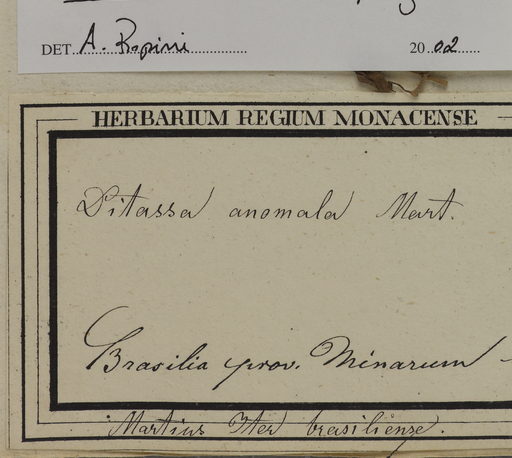 DET. A. Rapini 2002
HERBARIUM REGIUM MONACENSE
Ditassa anomala Mart.
Brasilia prov. Minarum -
Martius Iter brasiliense.